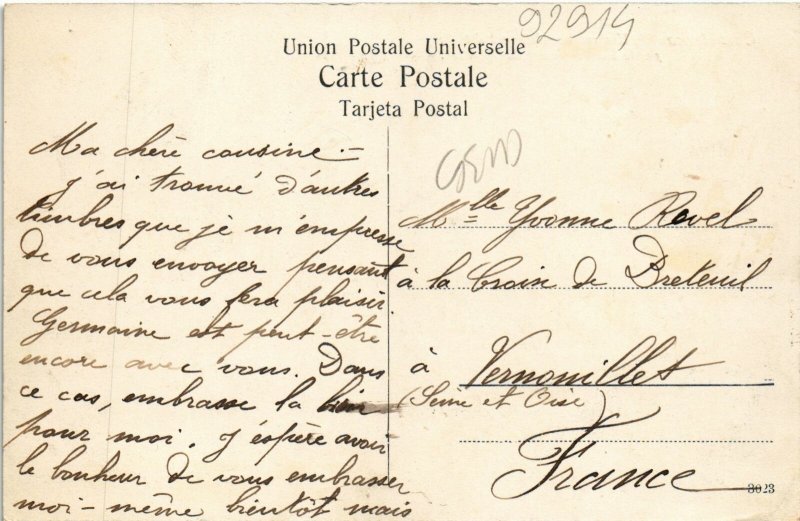 92914
Union Postale Universelle
Carte Postale
Tarjeta Postal
Ma chère cousine —
j'ai trouvé d'autres
timbres que je m'empresse
de vous envoyer pensant
que cela vous fera plaisir.
Germaine est peut-être
encore avec vous. Dans
ce cas, embrasse la bien
pour moi. J'espère avoir
le bonheur de vous embrasser
moi-même bientôt mais
GEND
Mlle Yvonne Revel
à la Croix de Breteuil
à Vernouillet
(Seine et Oise)
France
3023